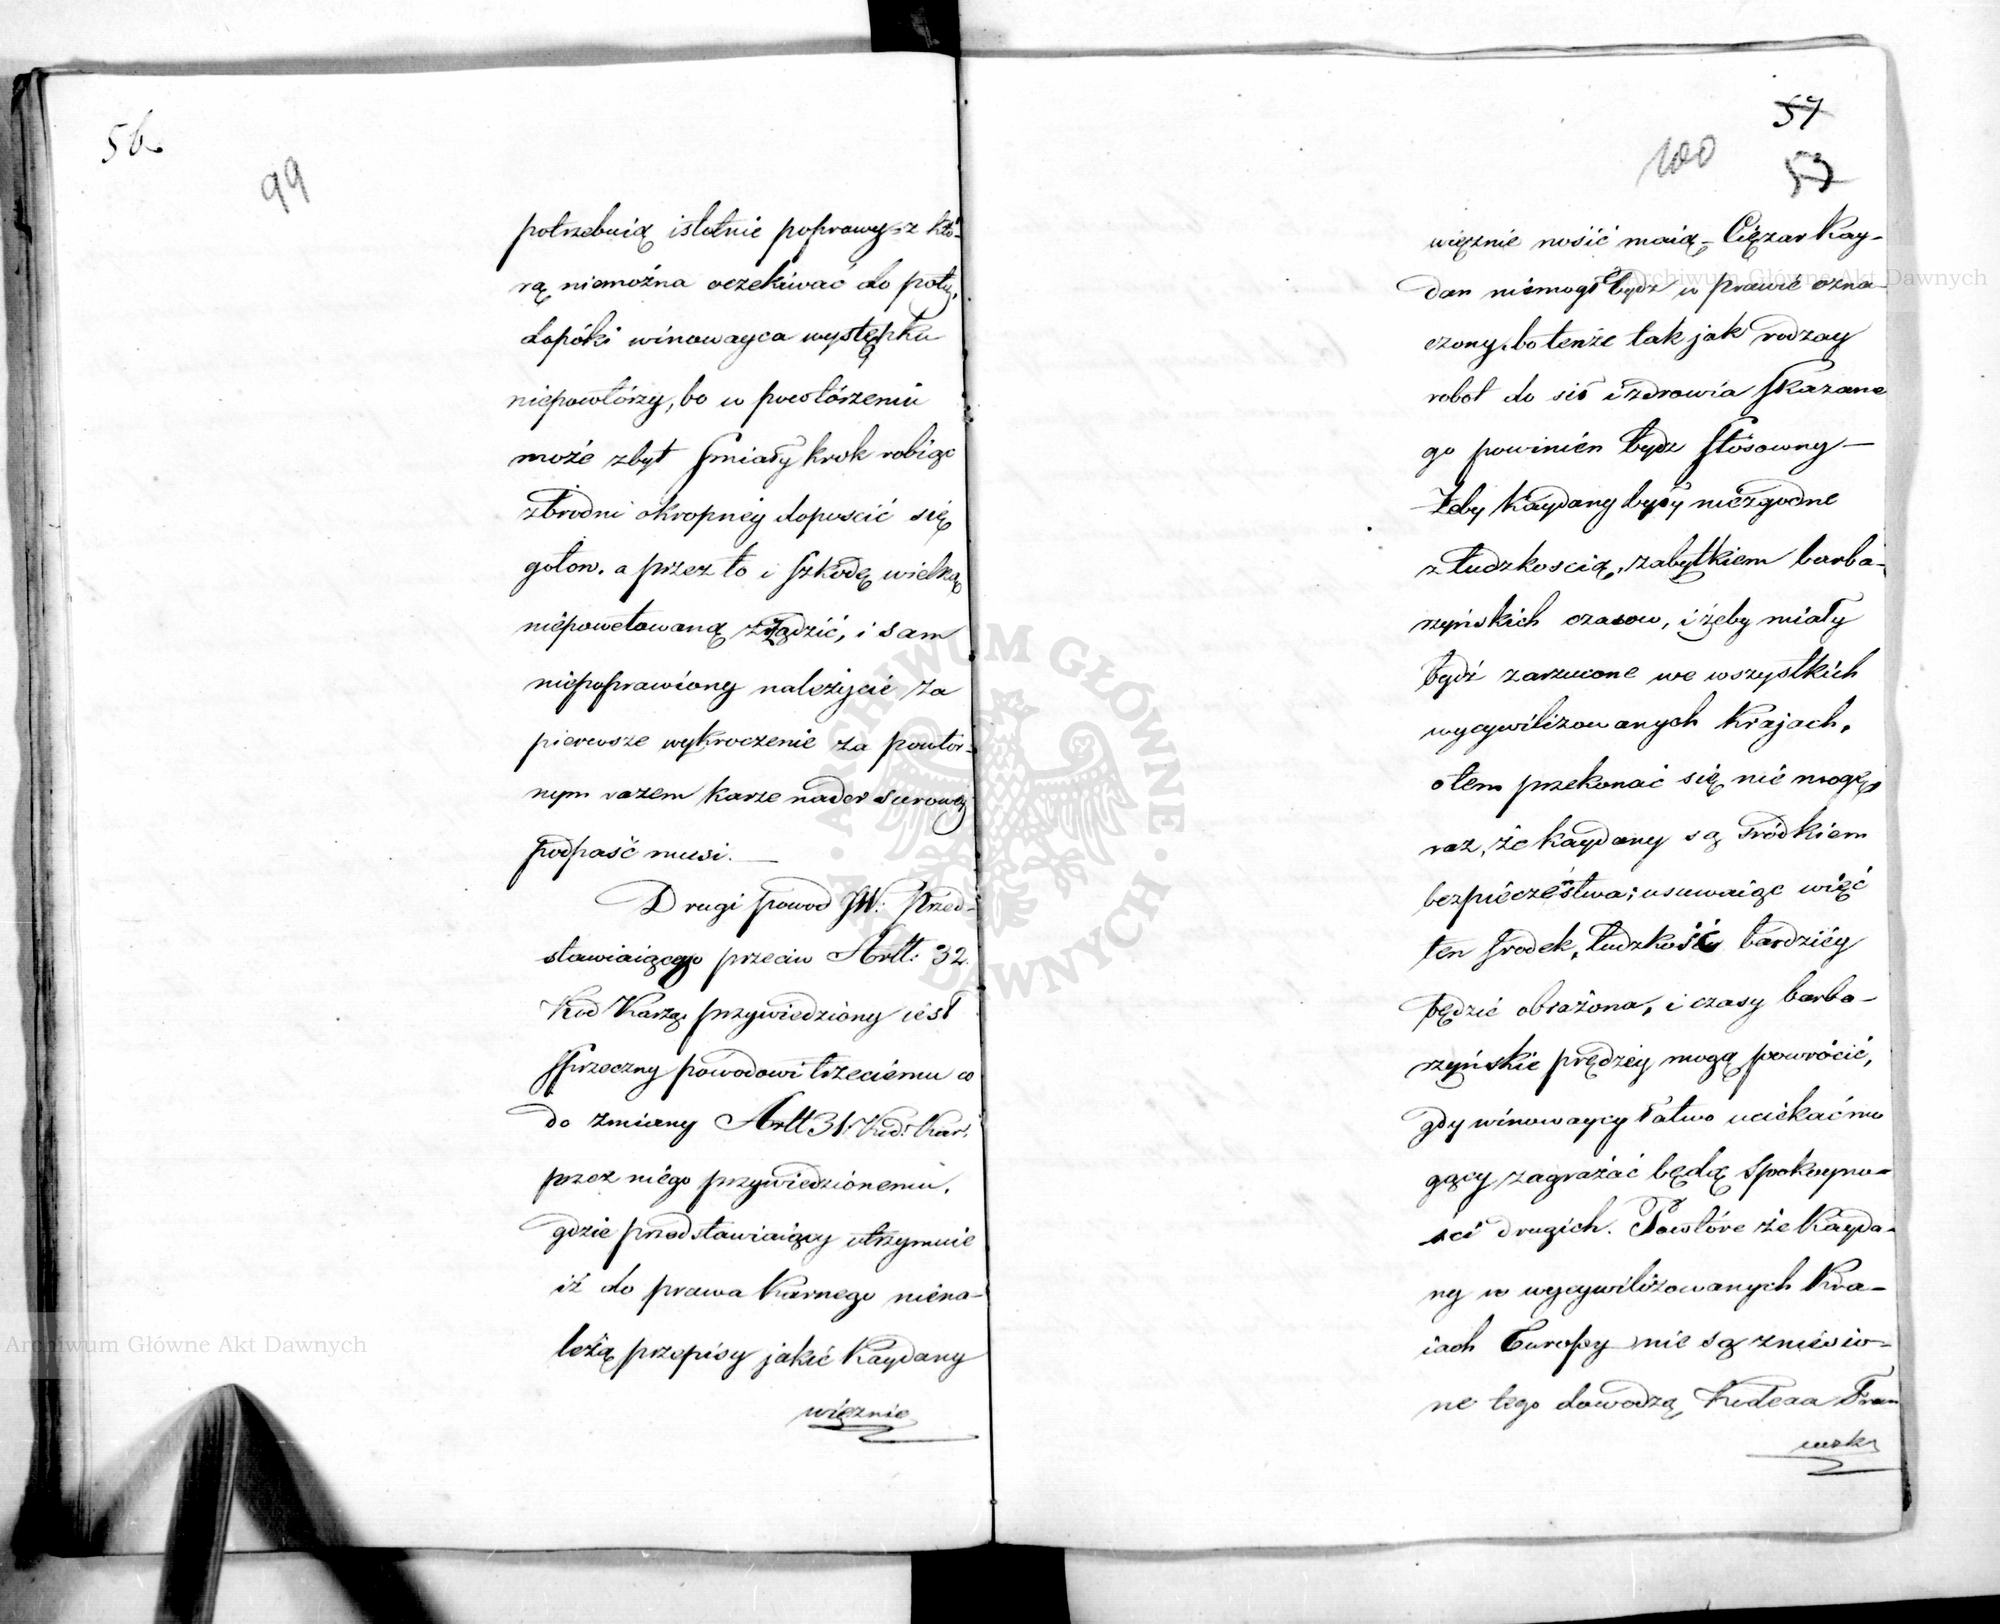 56.
99
potrzebuią istotnie poprawy, z któ-
rą niemożna oczekiwać do póty,
dopóki winowayca występku
niepowtórzy, bo w powtórzeniu
może zbyt smiały krok robiąc
zbrodni okropney dopuscić się
gotow. a przez to i szkodę wielką
niepowetowaną zrządzić, i sam
niepoprawiony należycie za
pierwsze wykroczenie za powtór-
nym razem karze nader surowey
podpaść musi. —
Drugi powod JW: Przed-
stawiaiącego przeciw Artt: 32
Kod Karzą. przywiedziony iest
sprzeczny powodowi trzeciemu co
do zmiany Artt 31: Kod: Karz.
przez niego przywiedzionemu.
gdzie przedstawiaiący utrzymuie
iż do prawa Karnego niena-
leżą przepisy jakie Kaydany
więznie
57
100
53
więznie nosić maią – Ciężar Kay-
dan niemogł bydź w prawie ozna-
czony, bo tenże tak jak rodzay
robot do sił i zdrowia skazane
go powinien bydz stosowny —
Żeby Kaydany były niezgodne
z ludzkoscią, zabytkiem barba-
rzyńskich czasow, i żeby miały
bydź zarzucone we wszystkich
wycywilizowanych Krajach,
o tem przekonać się nie mogę,
raz, że kaydany są srodkiem
bezpieczeństwa; usuwaiąc więc
ten srodek, ludzkość bardziey
będzie obrażona, i czasy barba-
rzyńskie prędzey mogą powrócić,
gdy winowaycy łatwo uciekać mo
gący zagrażać będą spokoyno-
sci drugich. Powtóre że Kayda-
ny w wycywilizowanych Kra-
iach Europy nie są zniesio-
ne tego dowodzą Kodexa Fran
cuzki
Archiwum Główne Akt Dawnych
Archiwum Główne Akt Dawnych
ARCHIWUM GŁÓWNE AKT DAWNYCH